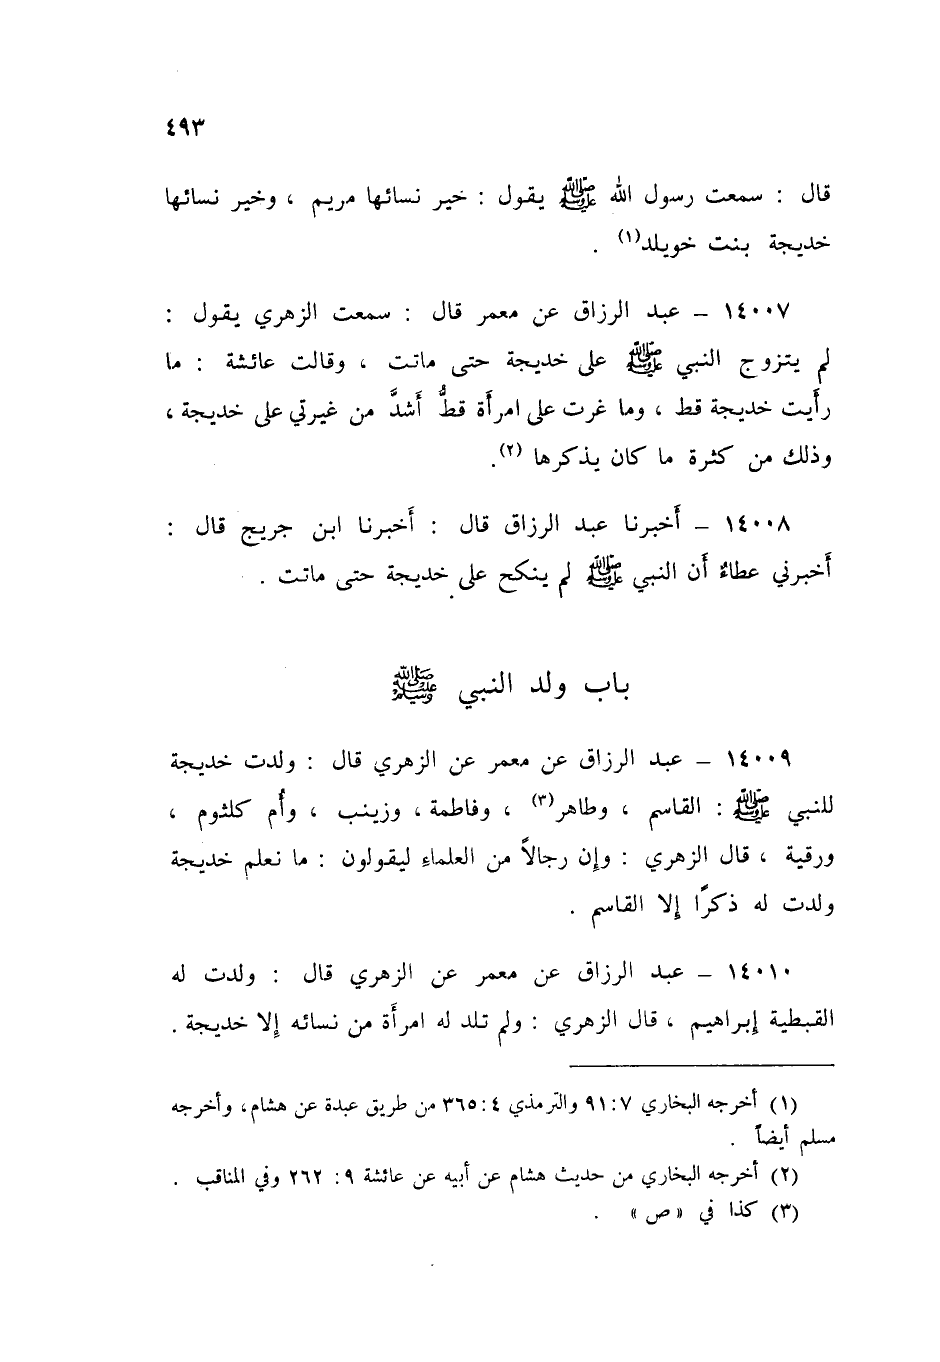 ٤٩٣
قال : سمعت رسول الله ﷺ يقول : خير نسائها مريم ، وخير نسائها
خديجة بنت خويلد(١) .
١٤٠٠٧ – عبد الرزاق عن معمر قال : سمعت الزهري يقول :
لم يتزوج النبي ﷺ على خديجة حتى ماتت ، وقالت عائشة : ما
رأيت خديجة قط ، وما غرت على امرأة قطُّ أشدَّ من غيرتي على خديجة ،
وذلك من كثرة ما كان يذكرها (٢).
١٤٠٠٨ – أخبرنا عبد الرزاق قال : أخبرنا ابن جريج قال :
أخبرني عطاءٌ أن النبي ﷺ لم ينكح على خديجة حتى ماتت .
باب ولد النبي ﷺ
١٤٠٠٩ – عبد الرزاق عن معمر عن الزهري قال : ولدت خديجة
للنبي ﷺ : القاسم ، وطاهر(٣) ، وفاطمة ، وزينب ، وأُم كلثوم ،
ورقية ، قال الزهري : وإن رجالاً من العلماءِ ليقولون : ما نعلم خديجة
ولدت له ذكرًا إلا القاسم .
١٤٠١٠ – عبد الرزاق عن معمر عن الزهري قال : ولدت له
القبطية إبراهيم ، قال الزهري : ولم تلد له امرأة من نسائه إلا خديجة .
(١) أخرجه البخاري ٧: ٩١ والترمذي ٤: ٣٦٥ من طريق عبدة عن هشام، وأخرجه
مسلم أيضاً .
(٢) أخرجه البخاري من حديث هشام عن أبيه عن عائشة ٩: ٢٦٢ وفي المناقب .
(٣) كذا في « ص » .